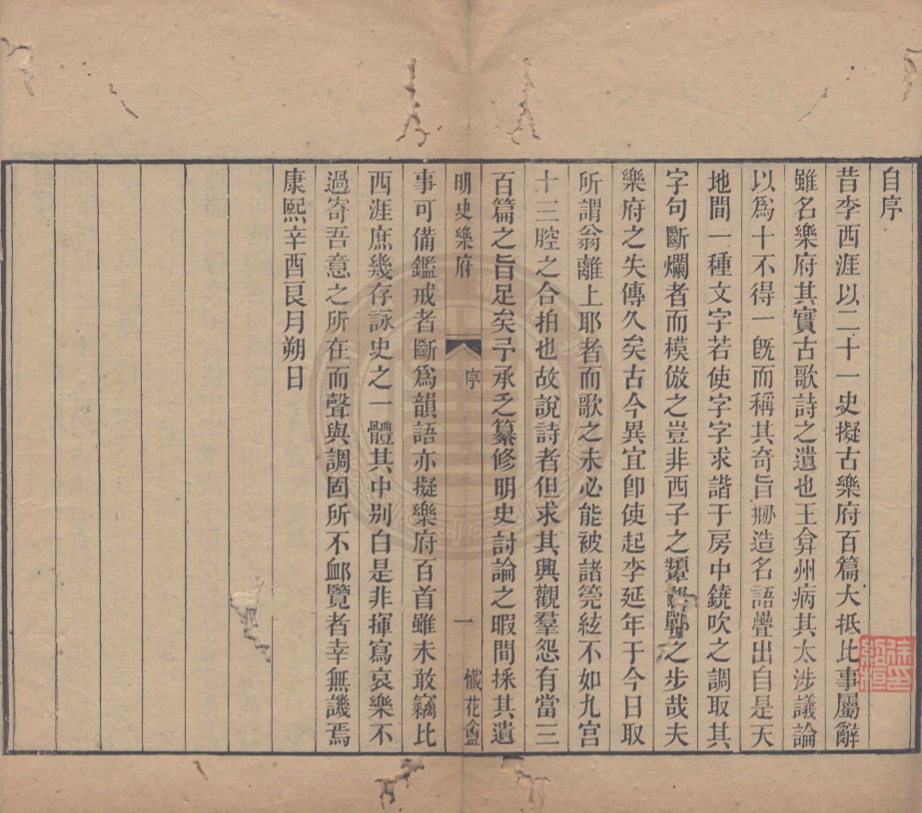 自序
昔李西涯以二十一史擬古樂府百篇大抵比事屬辭
雖名樂府其實古歌詩之遺也王弇州病其太涉議論
以爲十不得一旣而稱其奇旨刱造名語疊出自是天
地間一種文字若使字字求諧于房中鐃吹之調取其
字句斷爛者而模倣之豈非西子之顰邯鄲之步哉夫
樂府之失傳久矣古今異宜卽使起李延年于今日取
所謂翁離上耶者而歌之未必能被諸筦絃不如九宫
十三腔之合拍也故說詩者但求其興觀羣怨有當三
百篇之旨足矣予承乏纂修明史討論之暇間採其遺
明史樂府 序 一 懺花盦
事可備鑑戒者斷爲韻語亦擬樂府百首雖未敢竊比
西涯庶幾存詠史之一體其中别白是非揮寫哀樂不
過寄吾意之所在而聲與調固所不卹覽者幸無譏焉
康熙辛酉㫰月朔日